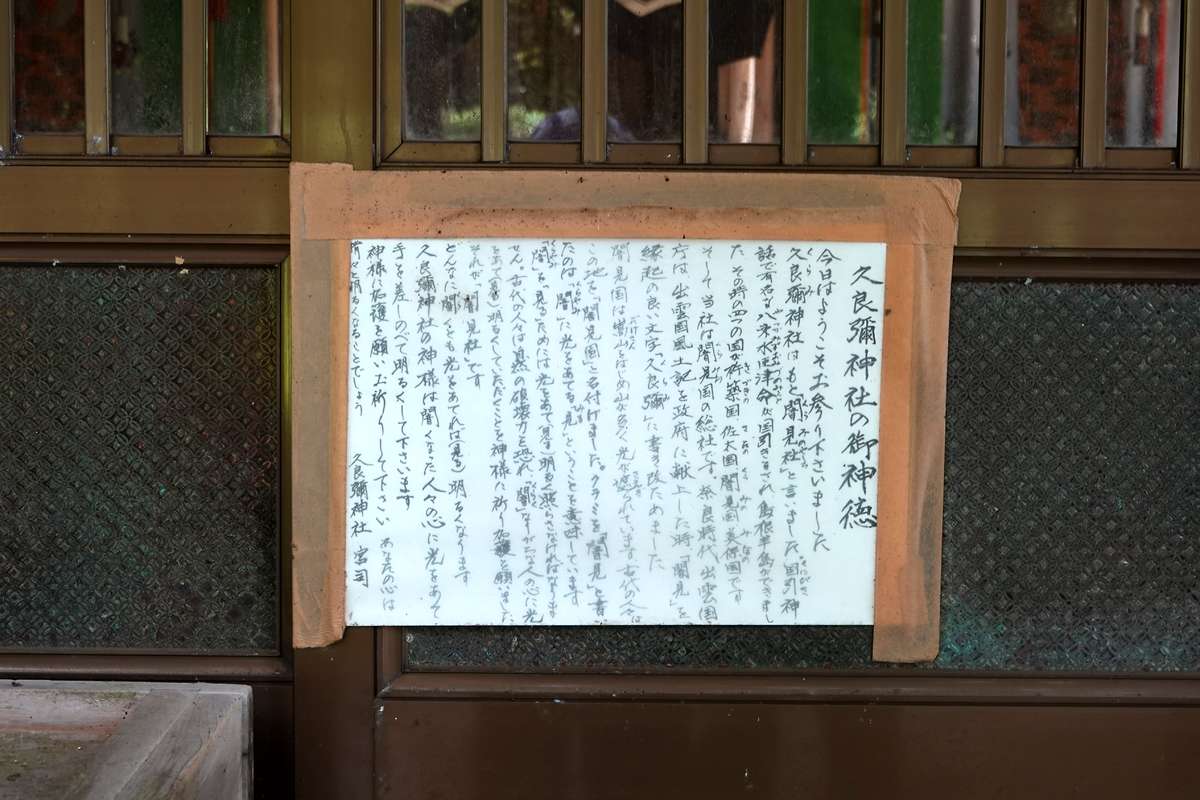 久良彌神社の御神徳
今日はようこそお参り下さいました
久良彌神社はもと「闇見社」と言いました 国引神
話で有名な八束水臣津命が国引きされ島根半島ができまし
た。その時の四つの国が杵築国 佐太国 闇見国 美保国です
そして当社は闇見国の総社です。奈良時代 出雲国
庁は出雲国風土記を政府に献上した時「闇見」を
縁起の良い文字「久良彌」に書き改ためました
闇見国は嵩山をはじめ山が多く光が遮られています 古代の人は
この地を「闇見国」と名付けました。クラミを「闇見」と書い
たのは「闇」に光をあてる「見」ということを意味しています
「闇」を「見る」ためには光をあて(見る)明るく照らさなければなりま
せん。古代の人々は自然の破壊力を恐れ「闇」になりがちな人の心に光
をあて 明るくしていただくことを神様に祈り加護を願いました
それが「闇見社」です
どんなに闇くも光をあてれば(見る)明るくなります
久良彌神社の神様は闇くなった人々の心に光をあて
手を差しのべて明るくして下さいます
神様に加護を願いお祈りして下さい あなたの心は
明るくなることでしょう
久良彌神社 宮司